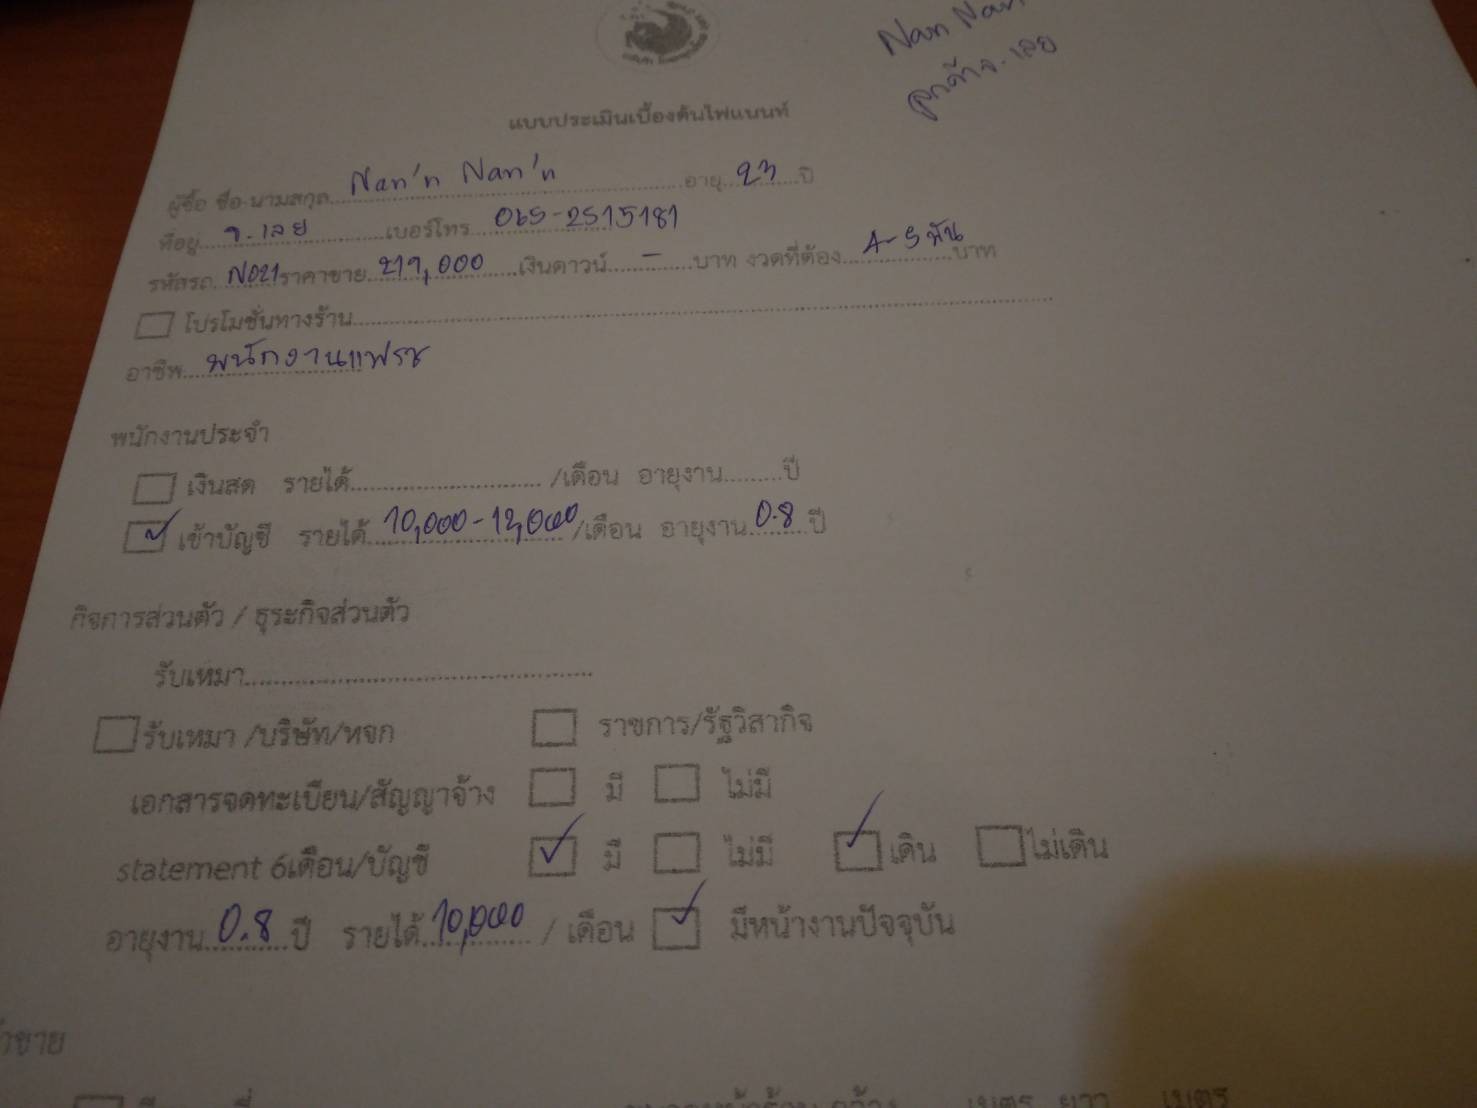 Nan Nan
ลูกค้าจ.เลย
แบบประเมินเบื้องต้นไฟแนนท์
ผู้ซื้อ ชื่อ-นามสกุล Nan'n Nan'n อายุ 23 ปี
ที่อยู่ จ.เลย เบอร์โทร 065-2515181
รหัสรถ N021 ราคาขาย 219,000 เงินดาวน์ - บาท งวดที่ต้อง 4-5 พัน บาท
โปรโมชั่นทางร้าน
อาชีพ พนักงานแฟรช
พนักงานประจำ
เงินสด รายได้ /เดือน อายุงาน ปี
เข้าบัญชี รายได้ 10,000-12,000 /เดือน อายุงาน 0.8 ปี
กิจการส่วนตัว / ธุระกิจส่วนตัว
รับเหมา
รับเหมา /บริษัท/หจก ราชการ/รัฐวิสากิจ
เอกสารจดทะเบียน/สัญญาจ้าง มี ไม่มี
statement 6เดือน/บัญชี มี ไม่มี เดิน ไม่เดิน
อายุงาน 0.8 ปี รายได้ 10,000 / เดือน มีหน้างานปัจจุบัน
เมตร ยาว เมตร